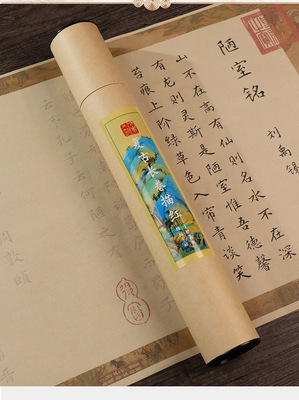 陋室铭
刘禹锡
山不在高有仙则名水不在深
有龙则灵斯是陋室惟吾德馨
苔痕上阶绿草色入帘青谈笑
复古长卷描红
云何陋之有